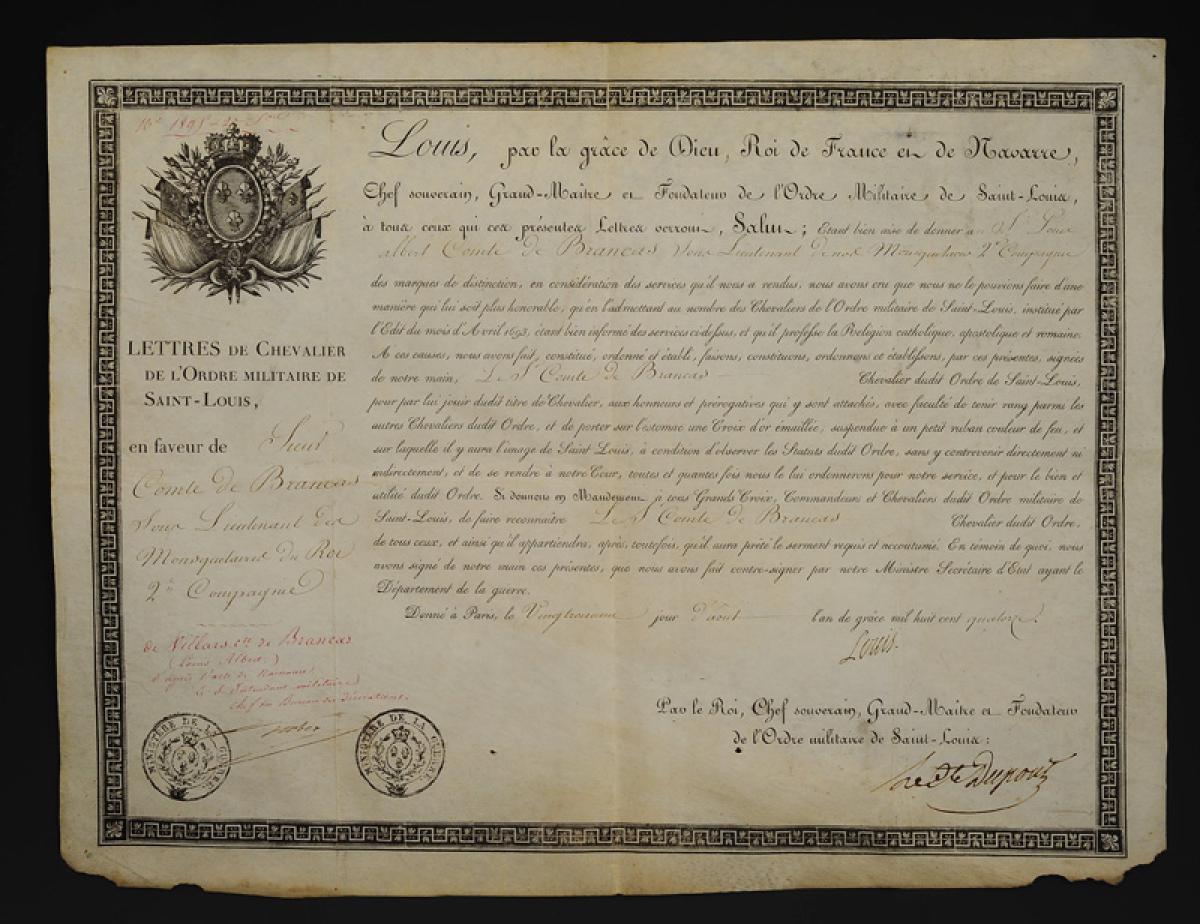 Nº 1895
LETTRES DE CHEVALIER
DE L'ORDRE MILITAIRE DE
SAINT-LOUIS,
en faveur de Sieur
Comte de Brancas
Sous Lieutenant des
Mousquetaires du Roi
2e Compagnie
de Villars cte de Brancas
(Louis Albert)
d'après l'acte de naissance
Le s. Intendant militaire
chef du Bureau des
MINISTÈRE DE LA GUERRE
MINISTÈRE DE LA GUERRE
Louis, par la grâce de Dieu, Roi de France et de Navarre,
Chef souverain, Grand-Maître et Fondateur de l'Ordre Militaire de Saint-Louis,
à tous ceux qui ces présentes Lettres verront, Salut; Etant bien aise de donner au Sr. Louis
albert Comte de Brancas Sous Lieutenant de nos Mousquetaires 2e Compagnie
des marques de distinction, en considération des services qu'il nous a rendus, nous avons cru que nous ne le pouvions faire d'une
manière qui lui soit plus honorable, qu'en l'admettant au nombre des Chevaliers de l'Ordre militaire de Saint-Louis, institué par
l'Edit du mois d'Avril 1693, étant bien informé des services ci-dessus, et qu'il professe la Religion catholique, apostolique et romaine.
A ces causes, nous avons fait, constitué, ordonné et établi, faisons, constituons, ordonnons et établissons, par ces présentes, signées
de notre main, Le Sr Comte de Brancas Chevalier dudit Ordre de Saint-Louis,
pour par lui jouir dudit titre de Chevalier, aux honneurs et prérogatives qui y sont attachés, avec faculté de tenir rang parmi les
autres Chevaliers dudit Ordre, et de porter sur l'estomac une Croix d'or émaillée, suspendue à un petit ruban couleur de feu, et
sur laquelle il y aura l'image de Saint Louis, à condition d'observer les Statuts dudit Ordre, sans y contrevenir directement ni
indirectement, et de se rendre à notre Cour, toutes et quantes fois nous le lui ordonnerons pour notre service, et pour le bien et
utilité dudit Ordre. Si donnons en Mandement à tous Grands Croix, Commandeurs et Chevaliers dudit Ordre militaire de
Saint-Louis, de faire reconnaître Le Sr Comte de Brancas Chevalier dudit Ordre,
de tous ceux, et ainsi qu'il appartiendra, après, toutefois, qu'il aura prêté le serment requis et accoutumé. En témoin de quoi, nous
avons signé de notre main ces présentes, que nous avons fait contre-signer par notre Ministre Secrétaire d'Etat ayant le
Département de la guerre.
Donné à Paris, le Vingtroisieme jour d'aout l'an de grâce mil huit cent quatorze.
Louis.
Par le Roi, Chef souverain, Grand-Maître et Fondateur
de l'Ordre militaire de Saint-Louis:
Le cte Dupont